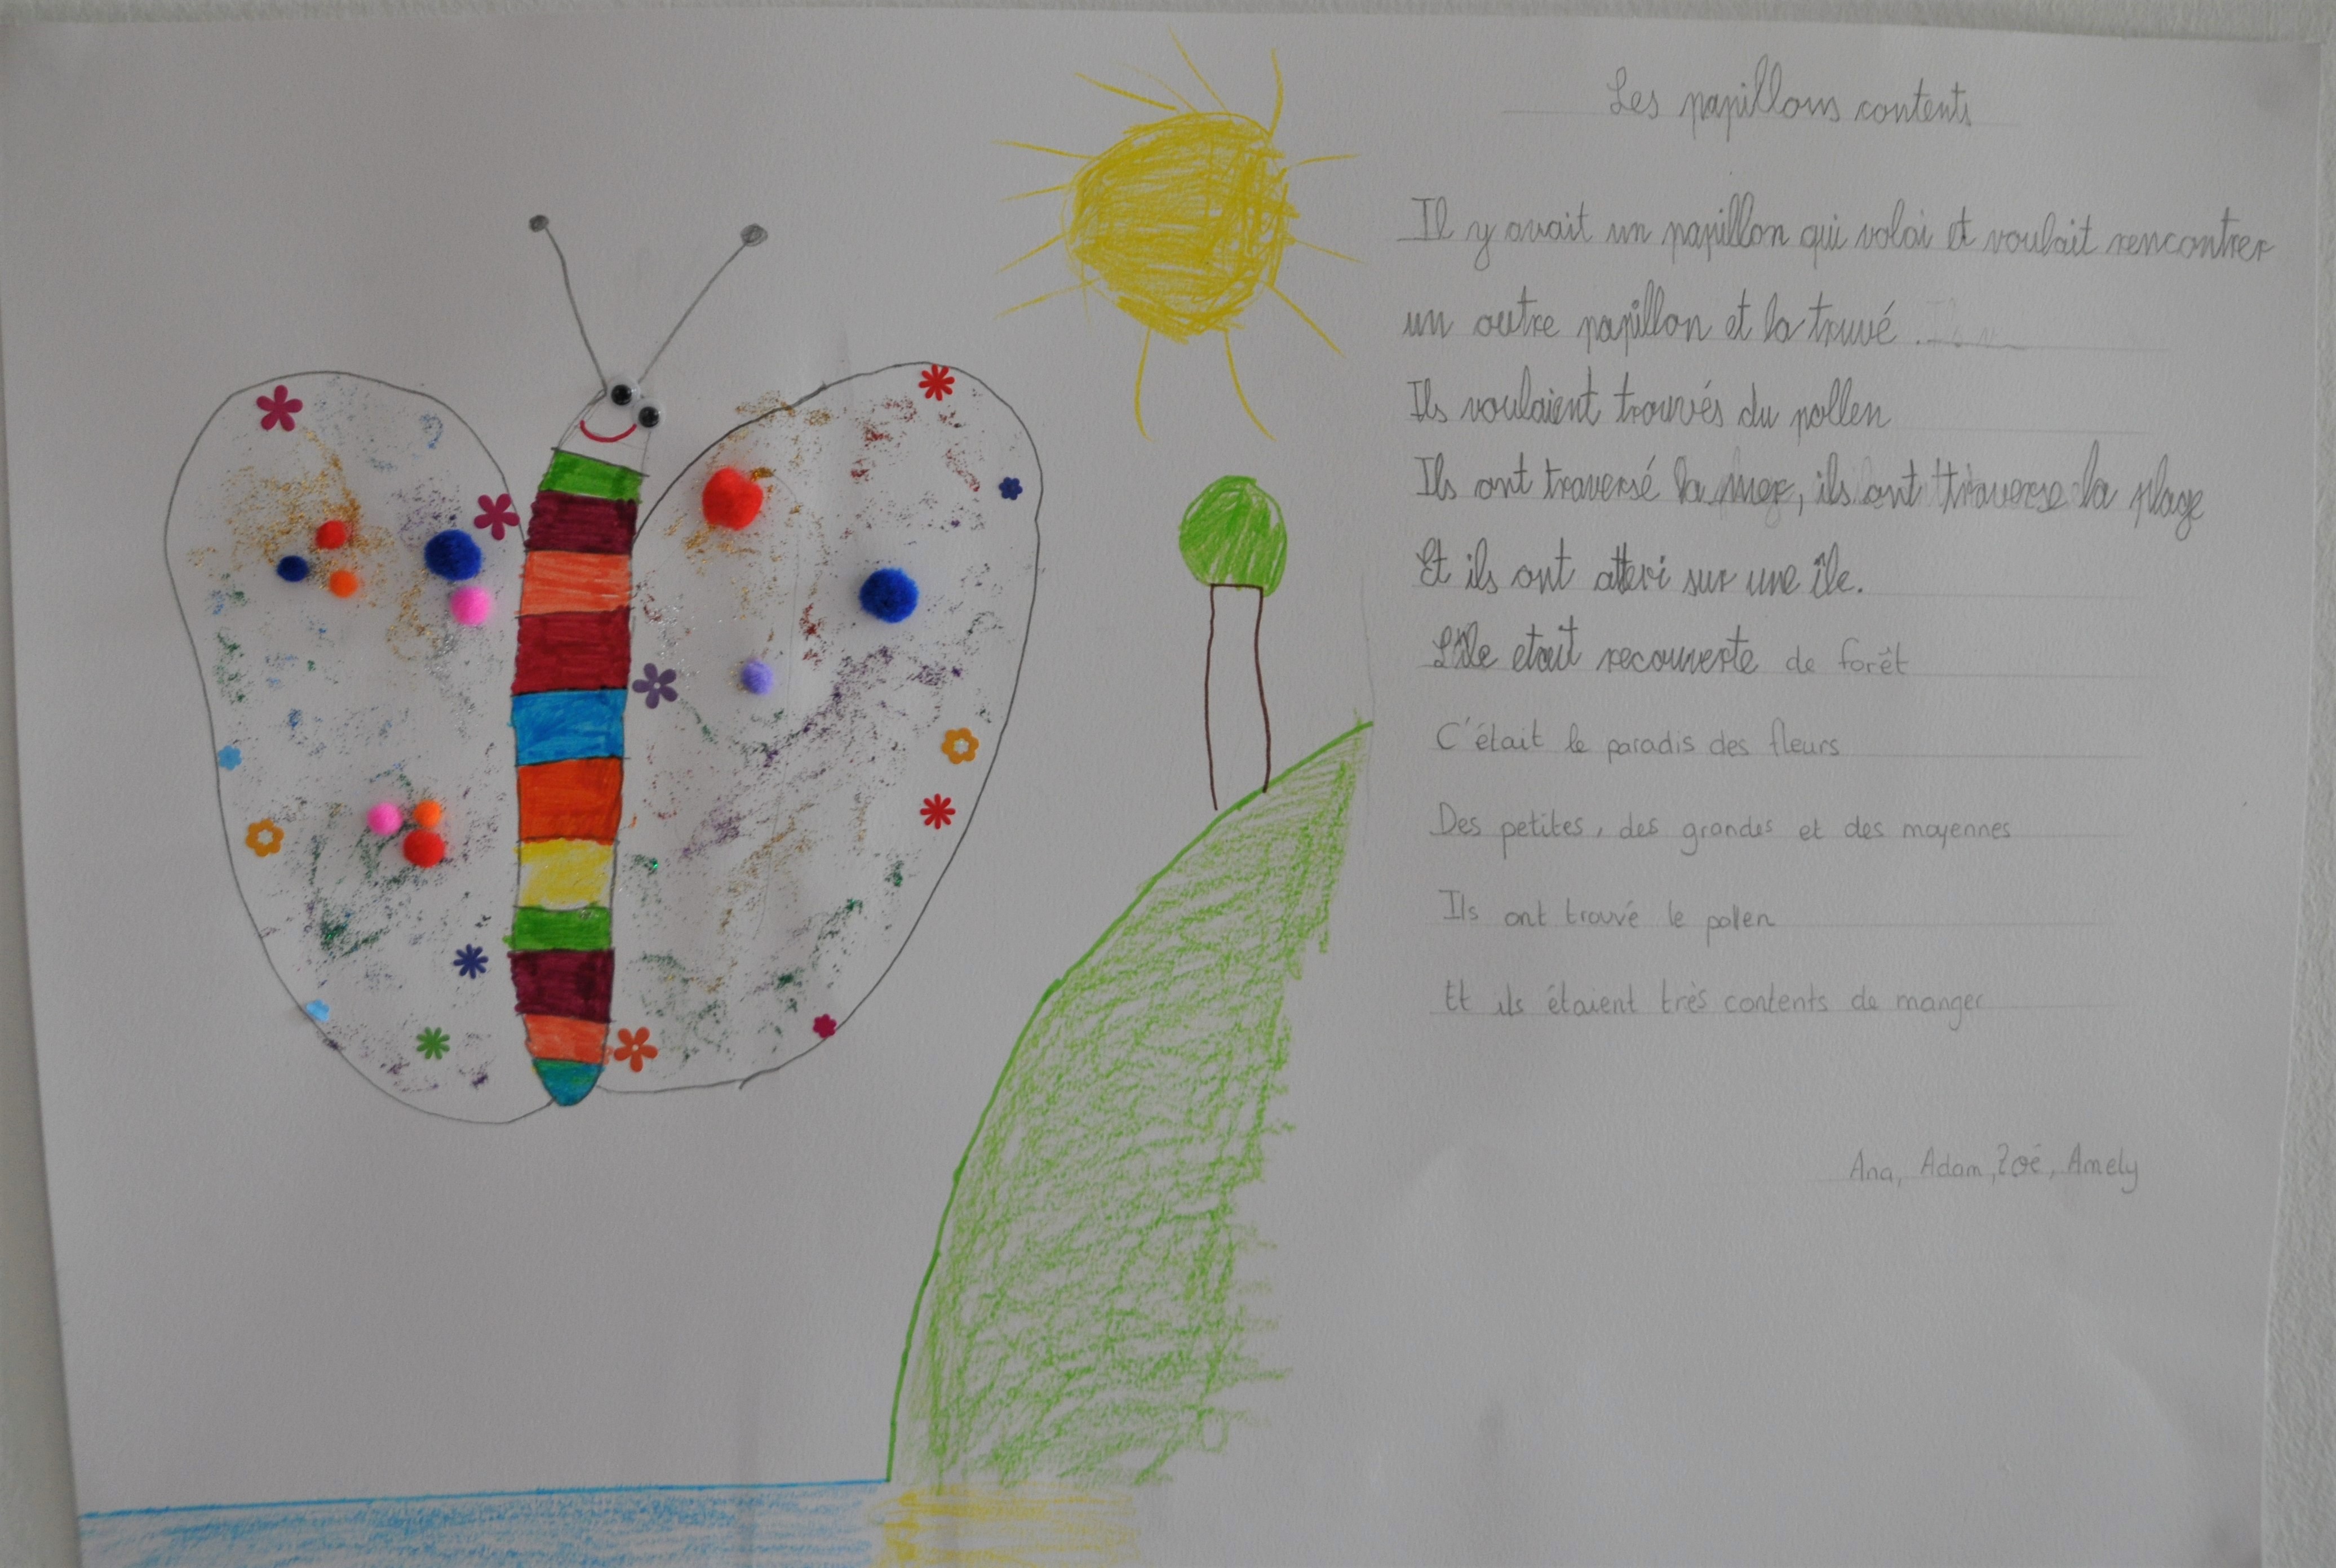 Les papillons contents
Il y avait un papillon qui volai et voulait rencontrer
un autre papillon et la truvé.
Ils voulaient trouvés du pollen
Ils ont traversé la mer, ils ont traverse la plage
Et ils ont atteri sur une île.
L'île etait recouverte de forêt
C'était le paradis des fleurs
Des petites, des grandes et des moyennes
Ils ont trouvé le pollen
Et ils étaient très contents de manger
Ana, Adam, Zoé, Amely